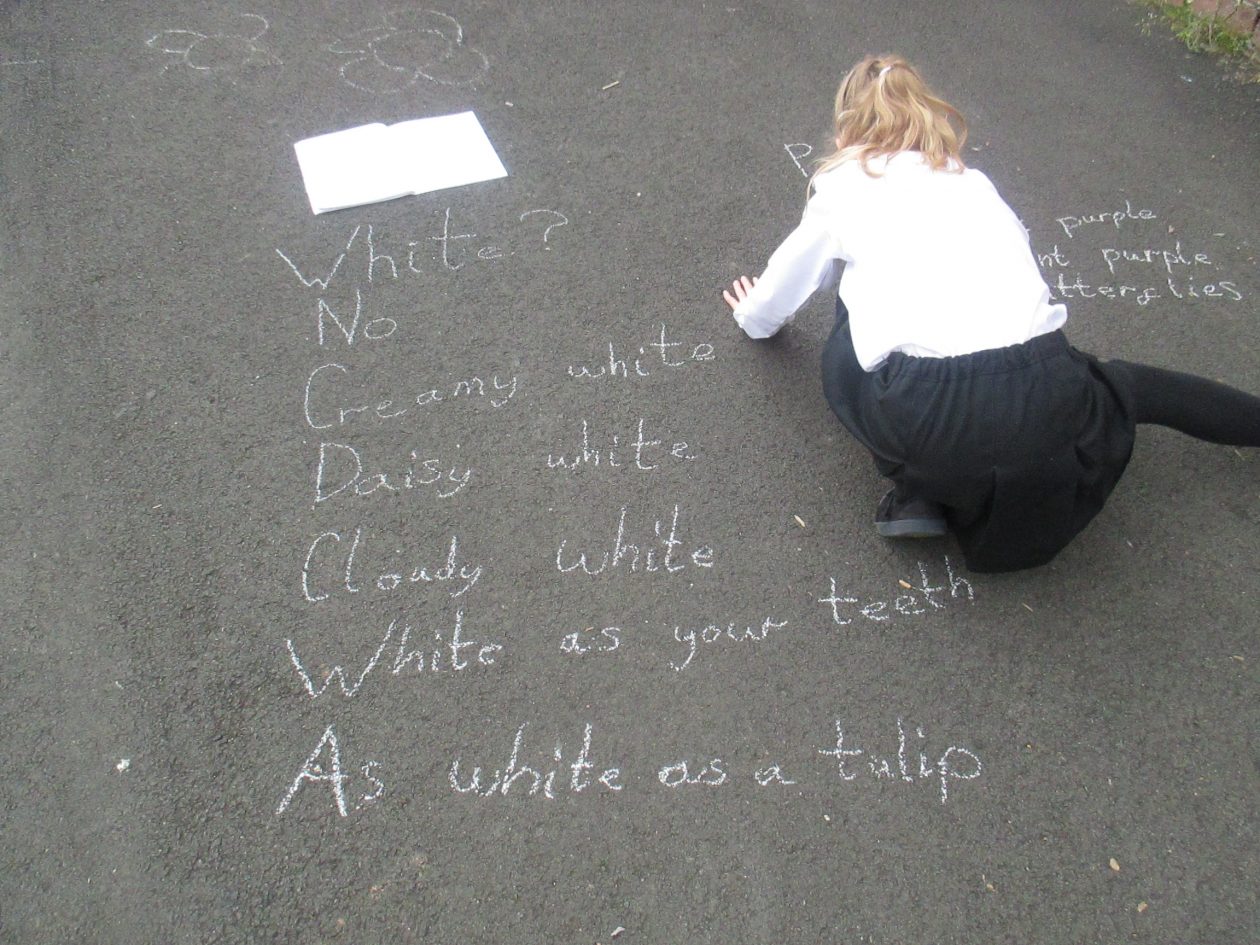 White?
No
Creamy white
Daisy white
Cloudy white
White as your teeth
As white as a tulip
P
purple
nt purple
tterflies